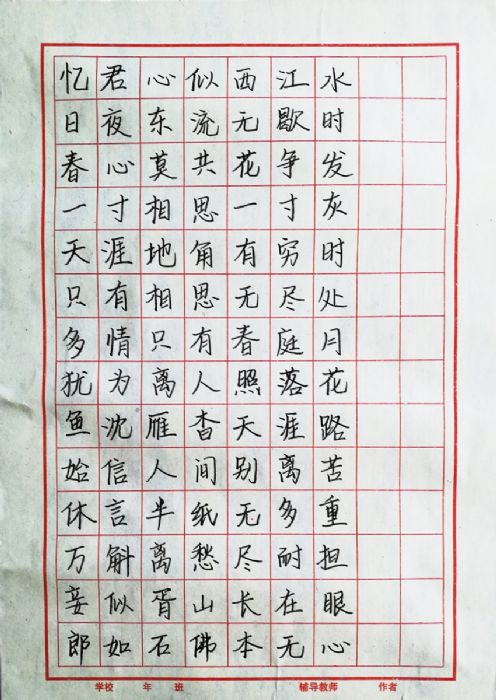 忆君心似西江水
日夜东流无歇时
春心莫共花争发
一寸相思一寸灰
天涯地角有穷时
只有相思无尽处
多情只有春庭月
犹为离人照落花
鱼沈雁杳天涯路
始信人间别离苦
休言半纸无多重
万斛离愁尽耐担
妾似胥山长在眼
郎如石佛本无心
学校 年 班 辅导教师 作者